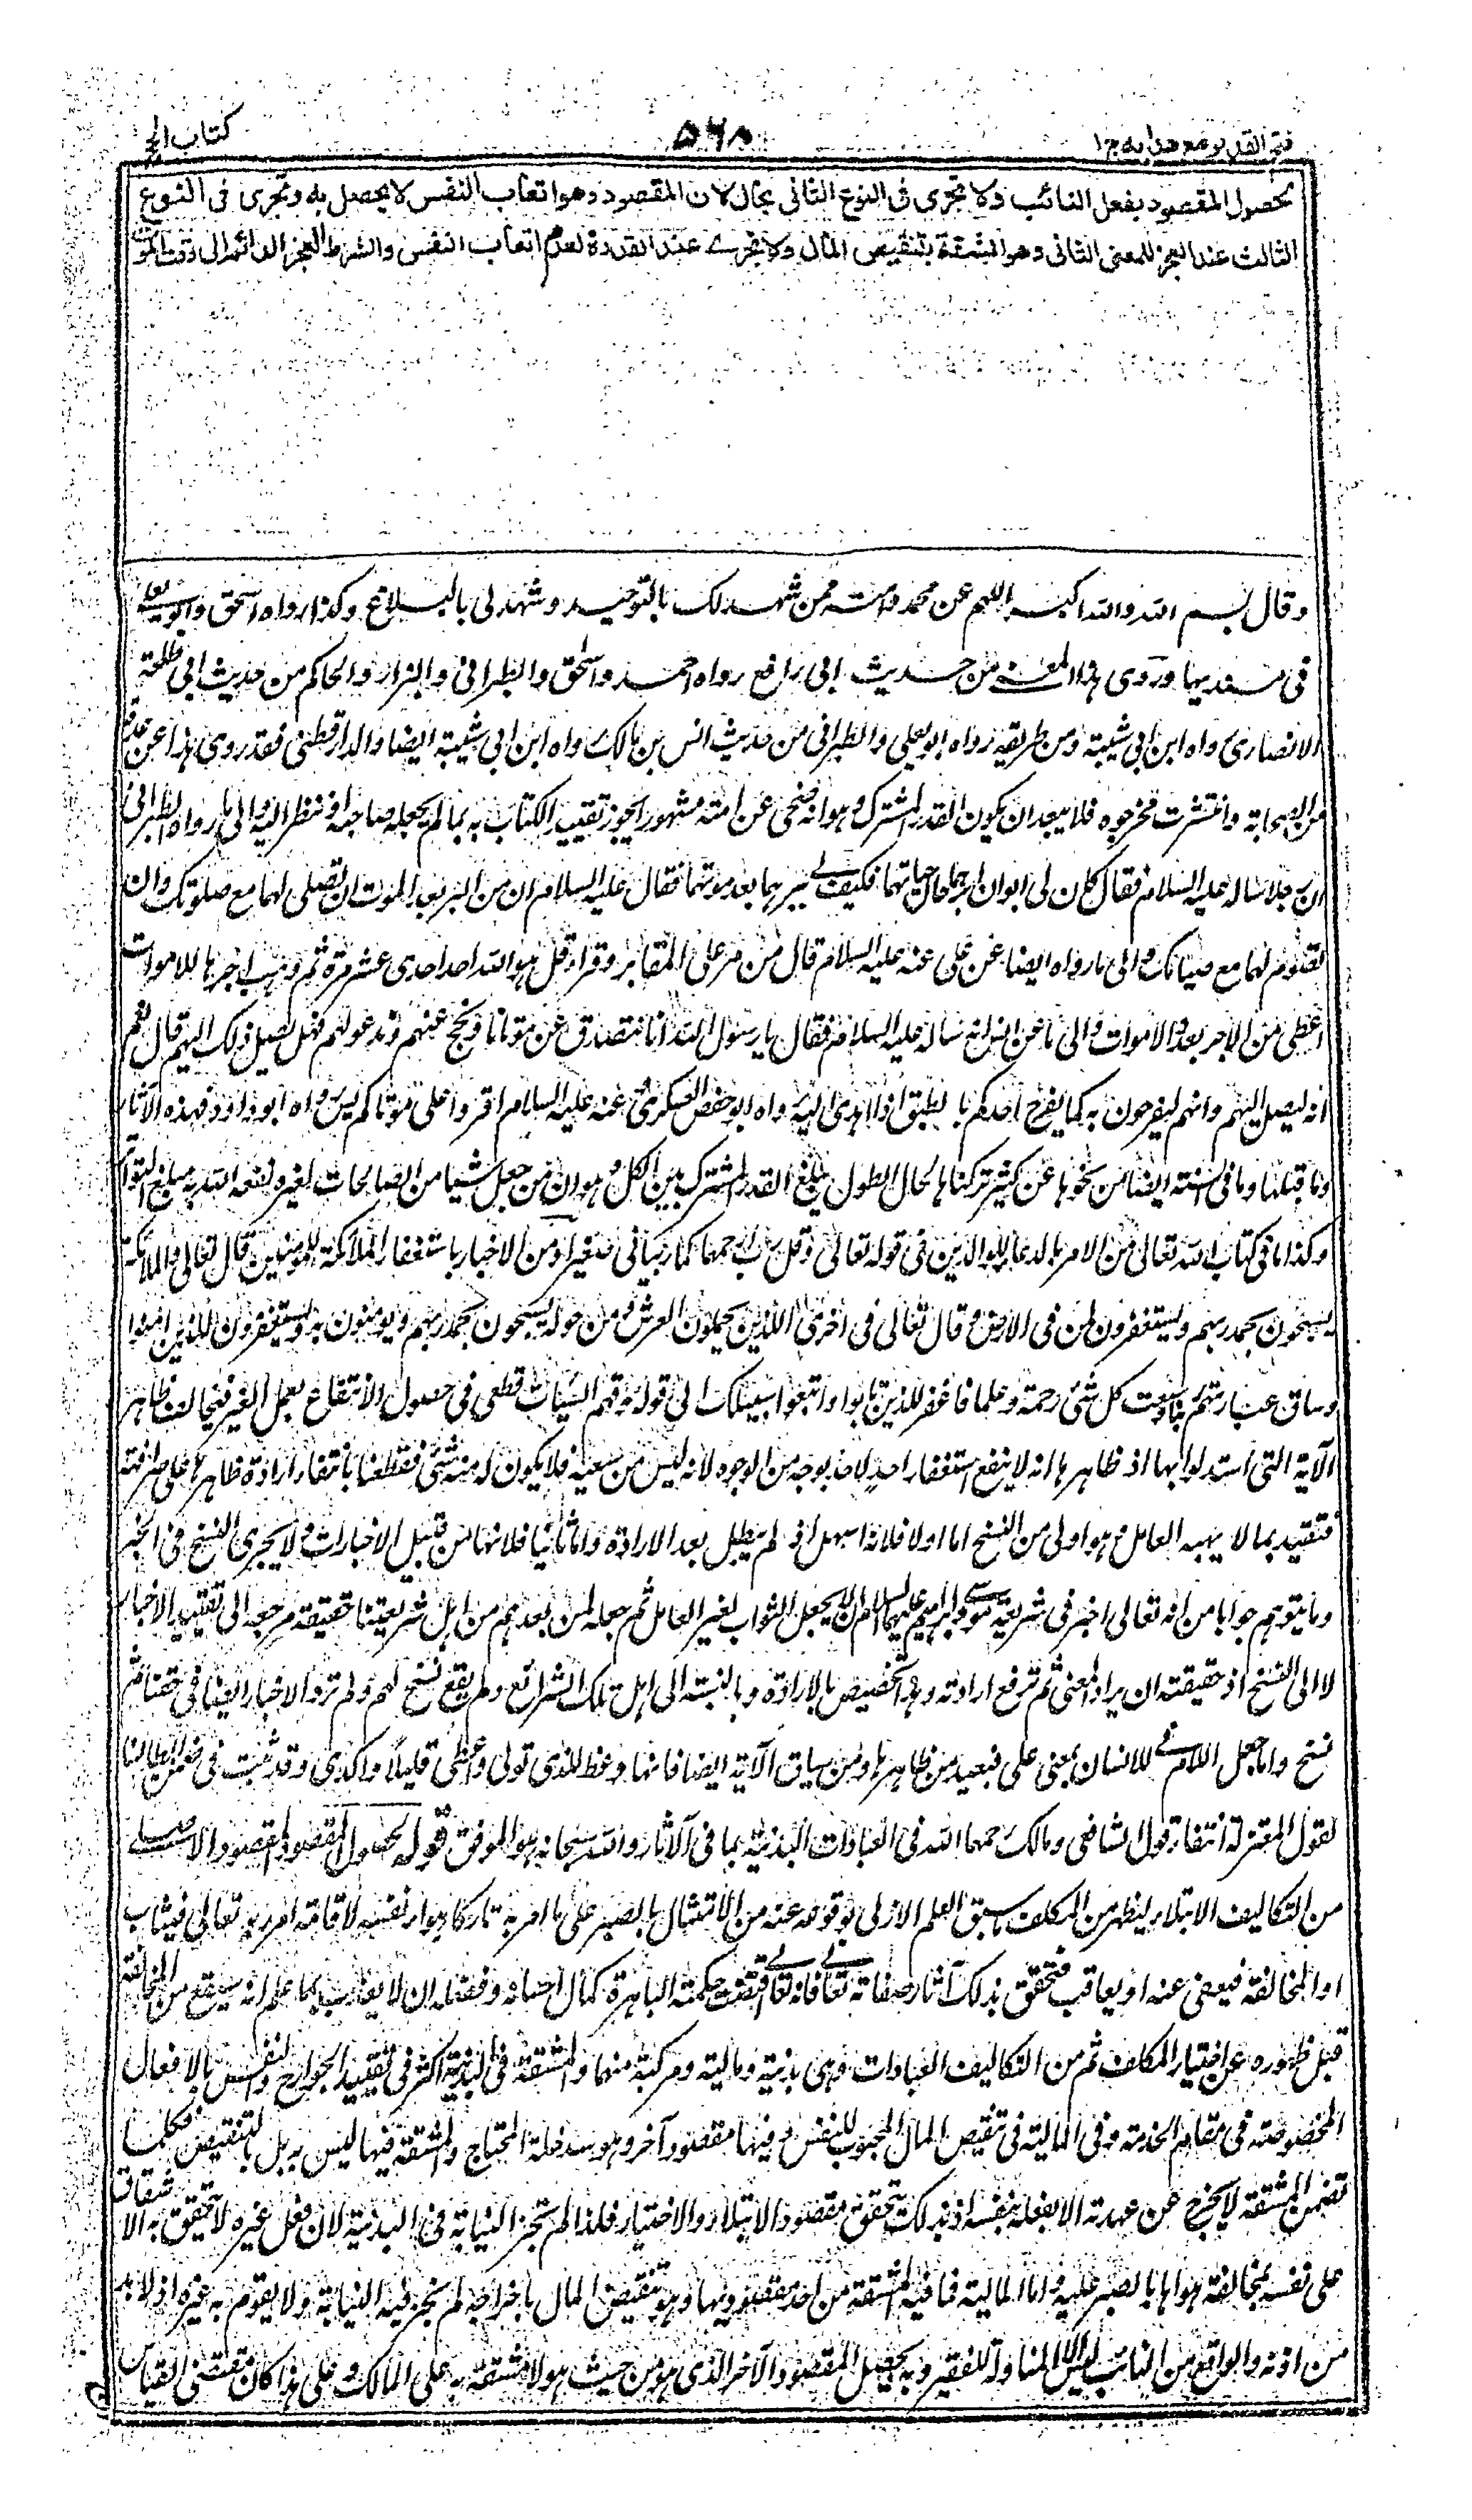 فتح القدير مع هدايه ج ١
٥٦٨
كتاب الحج
لحصول المقصود بفعل النائب ولا تجرى فى النوع الثانى بحال لان المقصود وهو اتعاب النفس لا يحصل به وتجرى فى النوع
الثالث عند العجز للمعنى الثانى وهو المشقة بتنقيص المال ولا تجرى عند القدرة لعدم اتعاب النفس والشرط العجز الدائم الى وقت الموت
وقال بسم الله والله اكبر اللهم عن محمد وامته ممن شهد لك بالتوحيد وشهد لى بالبلاغ وكذا رواه اسحق وابو يعلى
فى مسنديهما وروى هذا المعنى من حديث ابى رافع رواه احمد واسحق والطبرانى والبزار والحاكم من حديث ابى طلحة
الانصارى رواه ابن ابى شيبة ومن طريقه رواه ابو يعلى والطبرانى من حديث انس بن مالك رواه ابن ابى شيبة ايضا والدارقطنى فقد روى هذا عن عدة
من الصحابة وانتشرت مخرجوه فلا يبعد ان يكون القدر المشترك وهو انه ضحى عن امته مشهورا يجوز تقييد الكتاب به بما لم يجعله صاحبه او ننظر اليه والى ما رواه الطبرانى
ان رجلا سأله عليه السلام فقال كان لى ابوان ابرهما حال حياتهما فكيف لى ببرهما بعد موتهما فقال عليه السلام ان من البر بعد الموت ان تصلى لهما مع صلوتك وان
تصوم لهما مع صيامك والى ما رواه ايضا عن على عنه عليه السلام قال من مر على المقابر وقرأ قل هو الله احد احدى عشر مرة ثم وهب اجرها للاموات
اعطى من الاجر بعدد الاموات والى ما عن انس انه سأله عليه السلام فقال يا رسول الله انا نتصدق عن موتانا ونحج عنهم وندعو لهم فهل يصل ذلك اليهم قال نعم
انه ليصل اليهم وانهم ليفرحون به كما يفرح احدكم بالطبق اذا اهدى اليه رواه ابو حفص العكبرى وعنه عليه السلام اقرؤا على موتاكم يس رواه ابو داود فهذه الآثار
وما قبلها وما فى السنة ايضا من نحوها عن كثير تركناها لحال الطول يبلغ القدر المشترك بين الكل وهو ان من جعل شيئا من الصالحات لغيره نفعه الله به مبلغ التواتر
وكذا ما فى كتاب الله تعالى من الامر بالدعاء للوالدين فى قوله تعالى وقل رب ارحمهما كما ربيانى صغيرا ومن الاخبار باستغفار الملائكة للمؤمنين قال تعالى والملائكة
يسبحون بحمد ربهم ويستغفرون لمن فى الارض وقال تعالى فى اخرى الذين يحملون العرش ومن حوله يسبحون بحمد ربهم ويؤمنون به ويستغفرون للذين امنوا
وساق عبارتهم ربنا وسعت كل شئ رحمة وعلما فاغفر للذين تابوا واتبعوا سبيلك الى قوله وقهم السيئات قطعى فى حصول الانتفاع بعمل الغير فيخالف ظاهر
الآية التى استدلوا بها اذ ظاهرها انه لا ينفع استغفار احد لاحد بوجه من الوجوه لانه ليس من سعيه فلا يكون له منه شئ فقطعنا بانتفاء ارادة ظاهرها على صرافته
فتقيد بما لا يهبه العامل وهو اولى من النسخ اما اولا فلانه اسهل اذ لم يبطل بعد الارادة واما ثانيا فلانها من قبيل الاخبارات ولا يجرى النسخ فى الخبر
وما يتوهم جوابا من انه تعالى اخبر فى شريعة موسى وابراهيم عليهما السلام ان لا يجعل الثواب لغير العامل ثم جعله لمن بعدهم من اهل شريعتنا حقيقة مرجعه الى تقييد الاخبار
لا الى النسخ اذ حقيقته ان يراد المعنى ثم ترفع ارادته وهذا تخصيص بالارادة وبالنسبة الى اهل تلك الشرائع ولم يقع نسخ لهم ولم ترد الاخبار ايضا فى حقنا ثم
نسخ واما جعل اللام فى للانسان بمعنى على فبعيد من ظاهرها ومن سياق الآية ايضا فانها وعظ للذى تولى واعطى قليلا واكدى وقد ثبت فى ضمن ابطالنا
لقول المعتزلة انتفاء قول الشافعى ومالك رحمهما الله فى العبادات البدنية بما فى الآثار والله سبحانه هو الموفق قوله لحصول المقصود المقصود الاصلى
من التكاليف الابتلاء ليظهر من المكلف ما سبق العلم الازلى بوقوعه عنه من الامتثال بالصبر على ما امر به تاركا هوا نفسه لاقامة امر ربه تعالى فيثاب
او المخالفة فيعفى عنه او يعاقب فتحقق بذلك آثار صفاته تعالى فانه تعالى اقتضت حكمته الباهرة كمال احسانه وفضله ان لا يعذب بما علم انه سيقع من المخالفة
قبل ظهوره عن اختيار المكلف ثم من التكاليف العبادات وهى بدنية ومالية ومركبة منهما والمشقة فى البدنية اكثر فى تقييد الجوارح والنفس بالافعال
المخصوصة فى مقام الخدمة وفى المالية فى تنقيص المال المحبوب للنفس وفيها مقصود آخر وهو سد خلة المحتاج والمشقة فيها ليس به بل بالتنقيص فكل ما
تضمن المشقة لا يخرج عن عهدته الا بفعله بنفسه اذ بذلك يتحقق مقصود الابتلاء والاختبار فلذا لم تجز النيابة فى البدنية لان فعل غيره لا يتحقق به الاشقاق
على نفسه بمخالفة هواها بالصبر عليه واما المالية فما فيه المشقة من احد مقصوديها وهو تنقيص المال باخراجه لم تجز فيه النيابة ولا يقوم به غيره اذ لا بد
من اذنه والواقع من النائب ليس الا المناولة للفقير وبه يحصل المقصود الآخر الذى هو من حيث هو لا مشقة به على المالك وعلى هذا كان مقتضى القياس